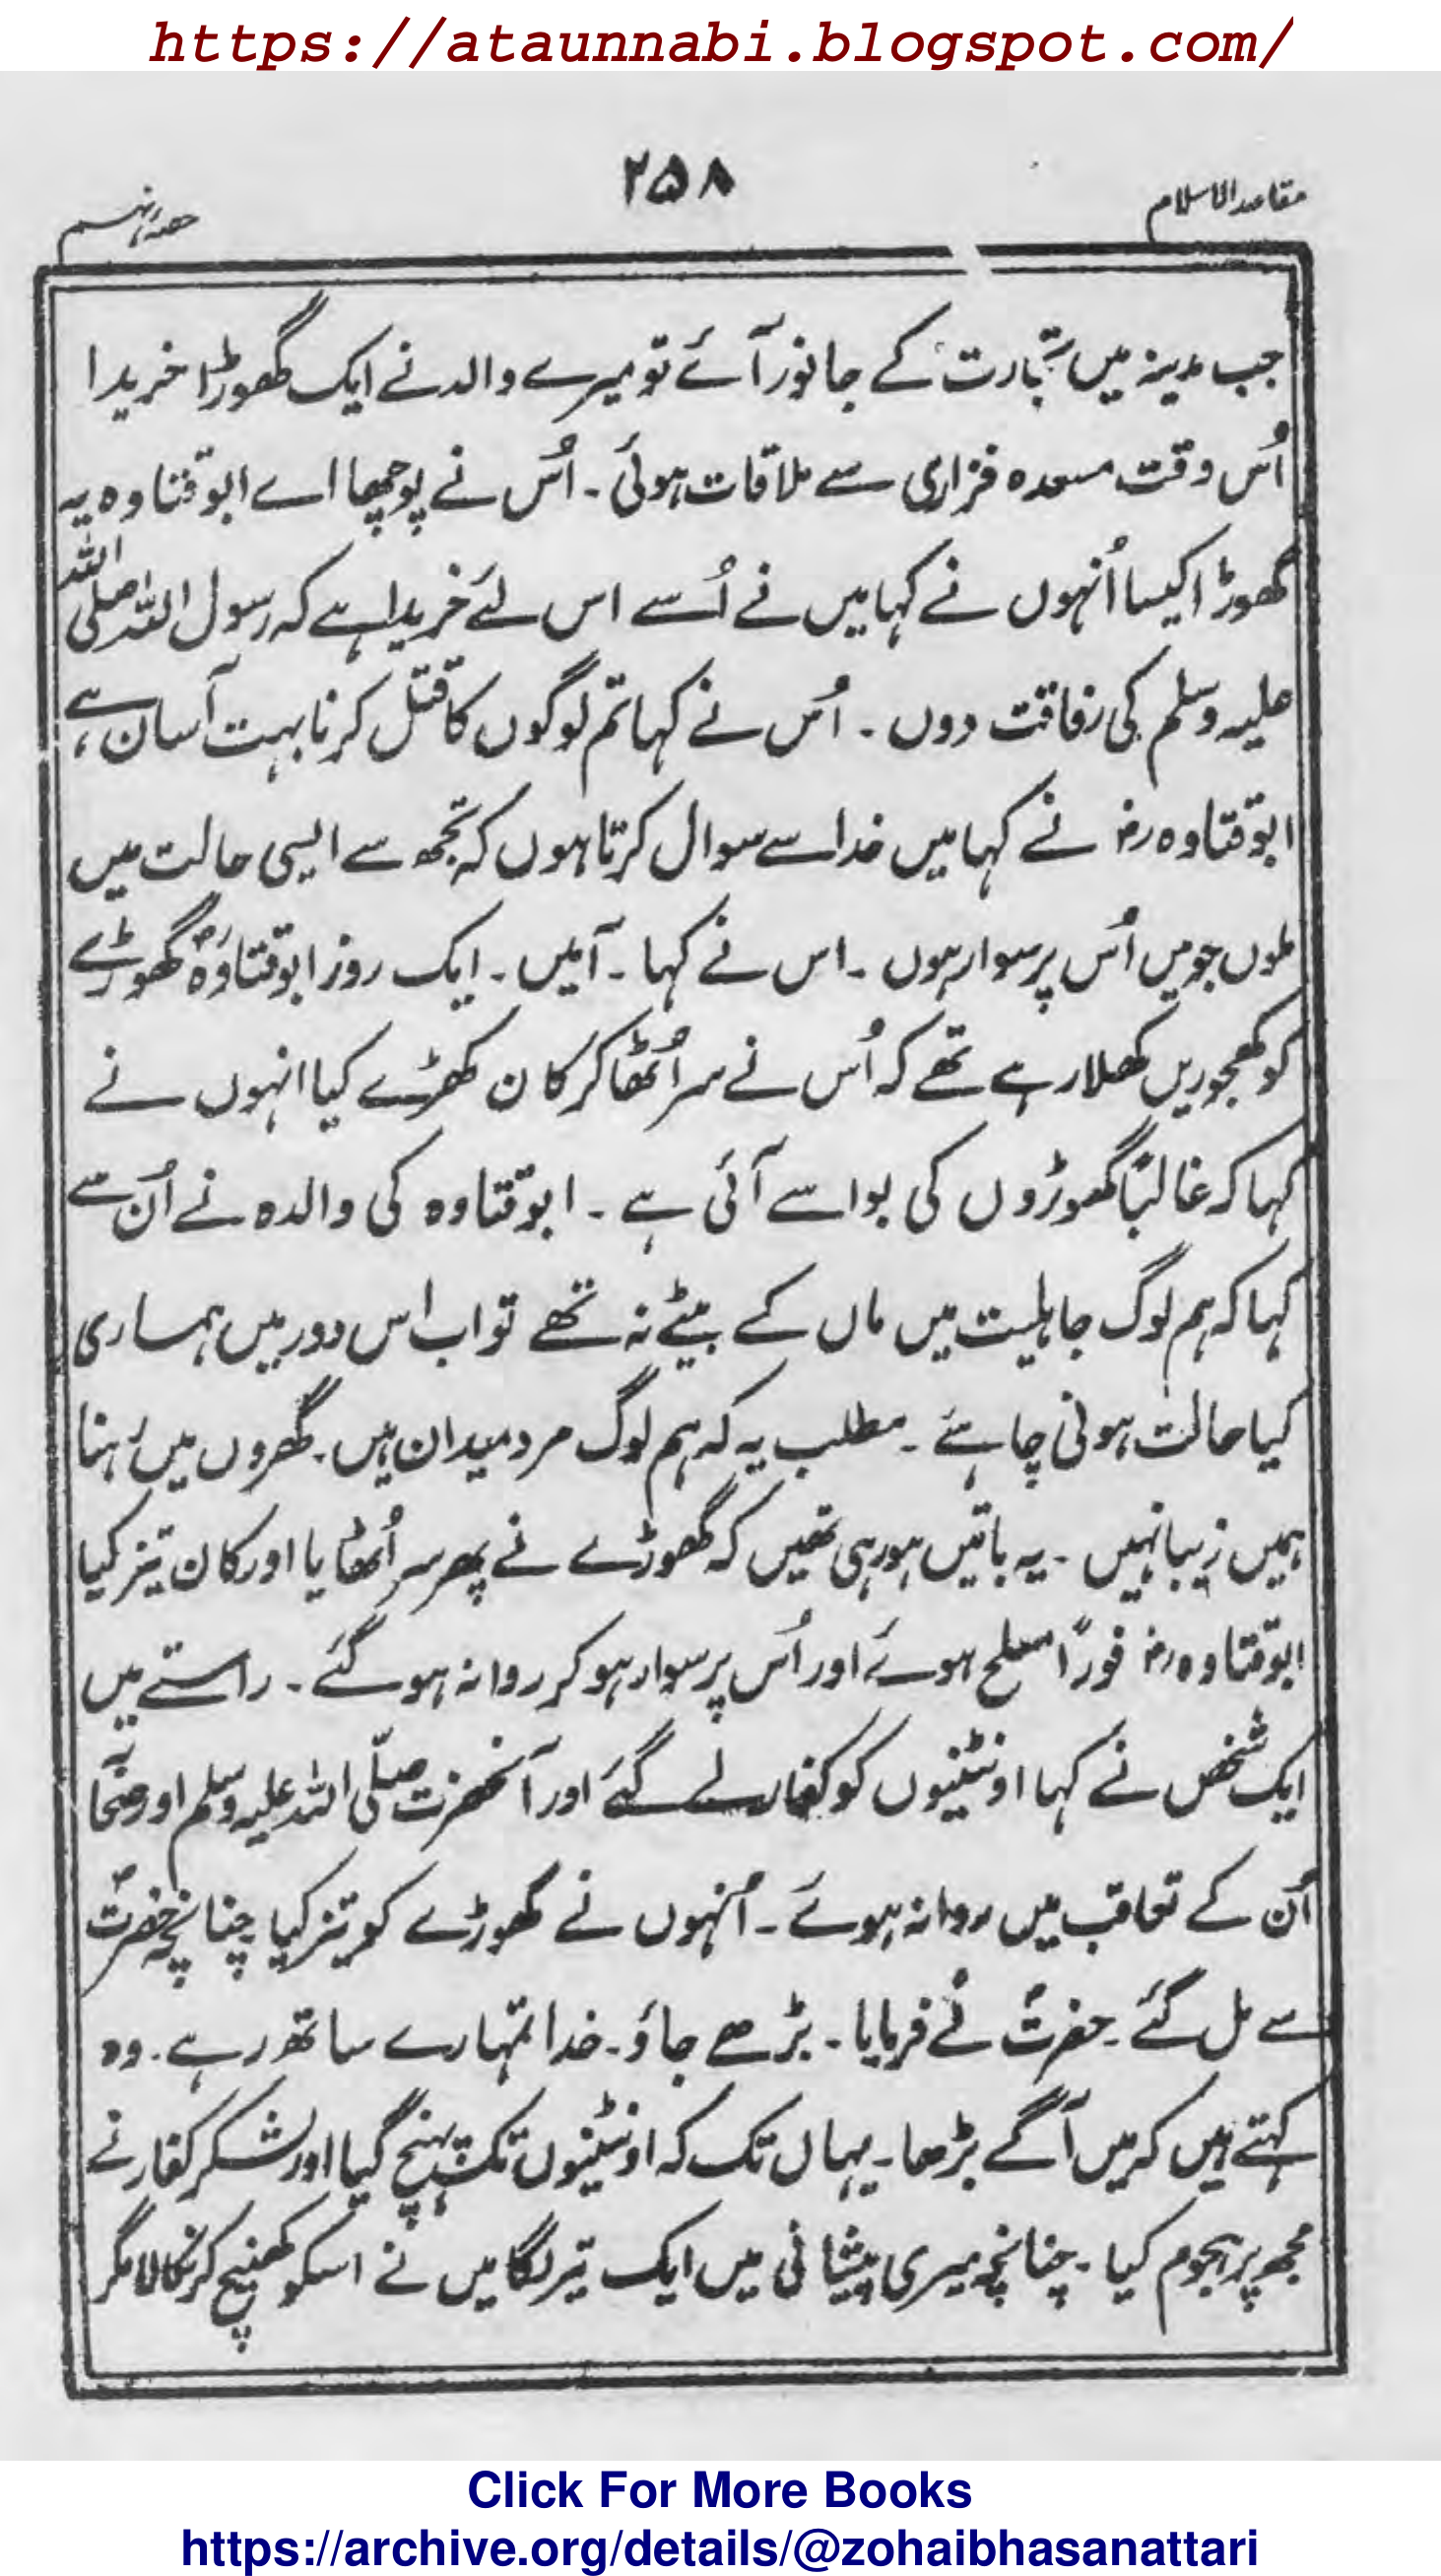 https://ataunnabi.blogspot.com/
مقاصد الاسلام
۲۵۸
حصہ نہم
جب مدینہ میں تجارت کے جانور آئے تو میرے والد نے ایک گھوڑا خریدا
اُس وقت مسعدہ فزاری سے ملاقات ہوئی ۔ اُس نے پوچھا اے ابوقتاوہ یہ
گھوڑا کیسا اُنہوں نے کہا میں نے اُسے اس لئے خریدا ہے کہ رسول اللہ صلی اللہ
علیہ وسلم کی رفاقت دوں ۔ اُس نے کہا تم لوگوں کا قتل کرنا بہت آسان ہے،
ابوقتاوہ رض نے کہا میں خدا سے سوال کرتا ہوں کہ تجھ سے ایسی حالت میں
ملوں جو میں اُس پر سوار ہوں ۔ اس نے کہا ۔ آمیں ۔ ایک روز ابوقتاوہؓ گھوڑے
کو کھجوریں کھلا رہے تھے کہ اُس نے سر اُٹھا کر کان کھڑے کیا انہوں نے
کہا کہ غالباً گھوڑوں کی بو اسے آئی ہے ۔ ابوقتاوہ کی والدہ نے اُن سے
کہا کہ ہم لوگ جاہلیت میں ماں کے بیٹے نہ تھے تو اب اس دور میں ہماری
کیا حالت ہونی چاہئے ۔ مطلب یہ کہ ہم لوگ مرد میدان ہیں ۔ گھروں میں رہنا
ہمیں زیبا نہیں ۔ یہ باتیں ہو رہی تھیں کہ گھوڑے نے پھر سر اُٹھایا اور کان تیز کیا
ابوقتاوہ رض فوراً مسلح ہوئے اور اُس پر سوار ہو کر روانہ ہو گئے ۔ راستے میں
ایک شخص نے کہا اونٹنیوں کو کفار لے گئے اور آنحضرت صلّی اللہ علیہ وسلم اور صحابہ
اُن کے تعاقب میں روانہ ہوئے ۔ اُنہوں نے گھوڑے کو تیز کیا چنانچہ حضرتؐ
سے مل گئے ۔ حضرتؐ نے فرمایا ۔ بڑھے جاؤ ۔ خدا تمہارے ساتھ رہے ۔ وہ
کہتے ہیں کہ میں آگے بڑھا ۔ یہاں تک کہ اونٹنیوں تک پہنچ گیا اور لشکر کفار نے
مجھ پر ہجوم کیا ۔ چنانچہ میری پیشانی میں ایک تیر لگا میں نے اسکو کھینچ کر نکالا مگر
Click For More Books
https://archive.org/details/@zohaibhasanattari